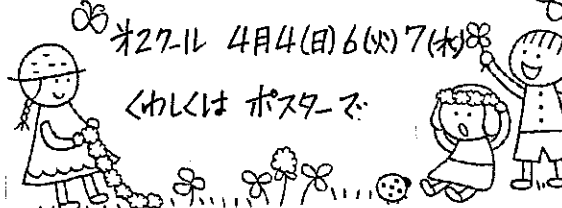 第2クール 4月4(日)6(火)7(水)
くわしくは ポスターで